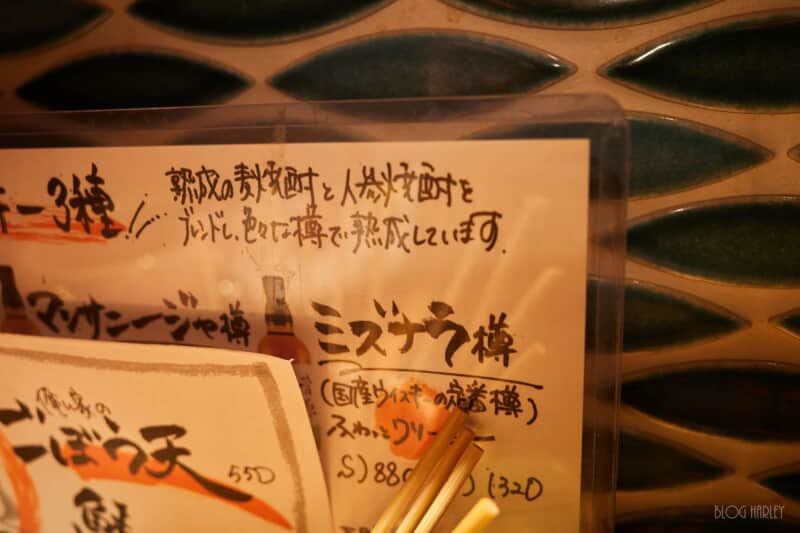 キー3種
熟成の麦焼酎と人参焼酎を
ブレンドし、色々な樽で熟成しています。
マツサニージャ樽
ミズナラ樽
(国産ウイスキーの定番樽)
ふわっとクリーミー
S) 880
) 1320
ごぼう天
550
BLOG HARLEY